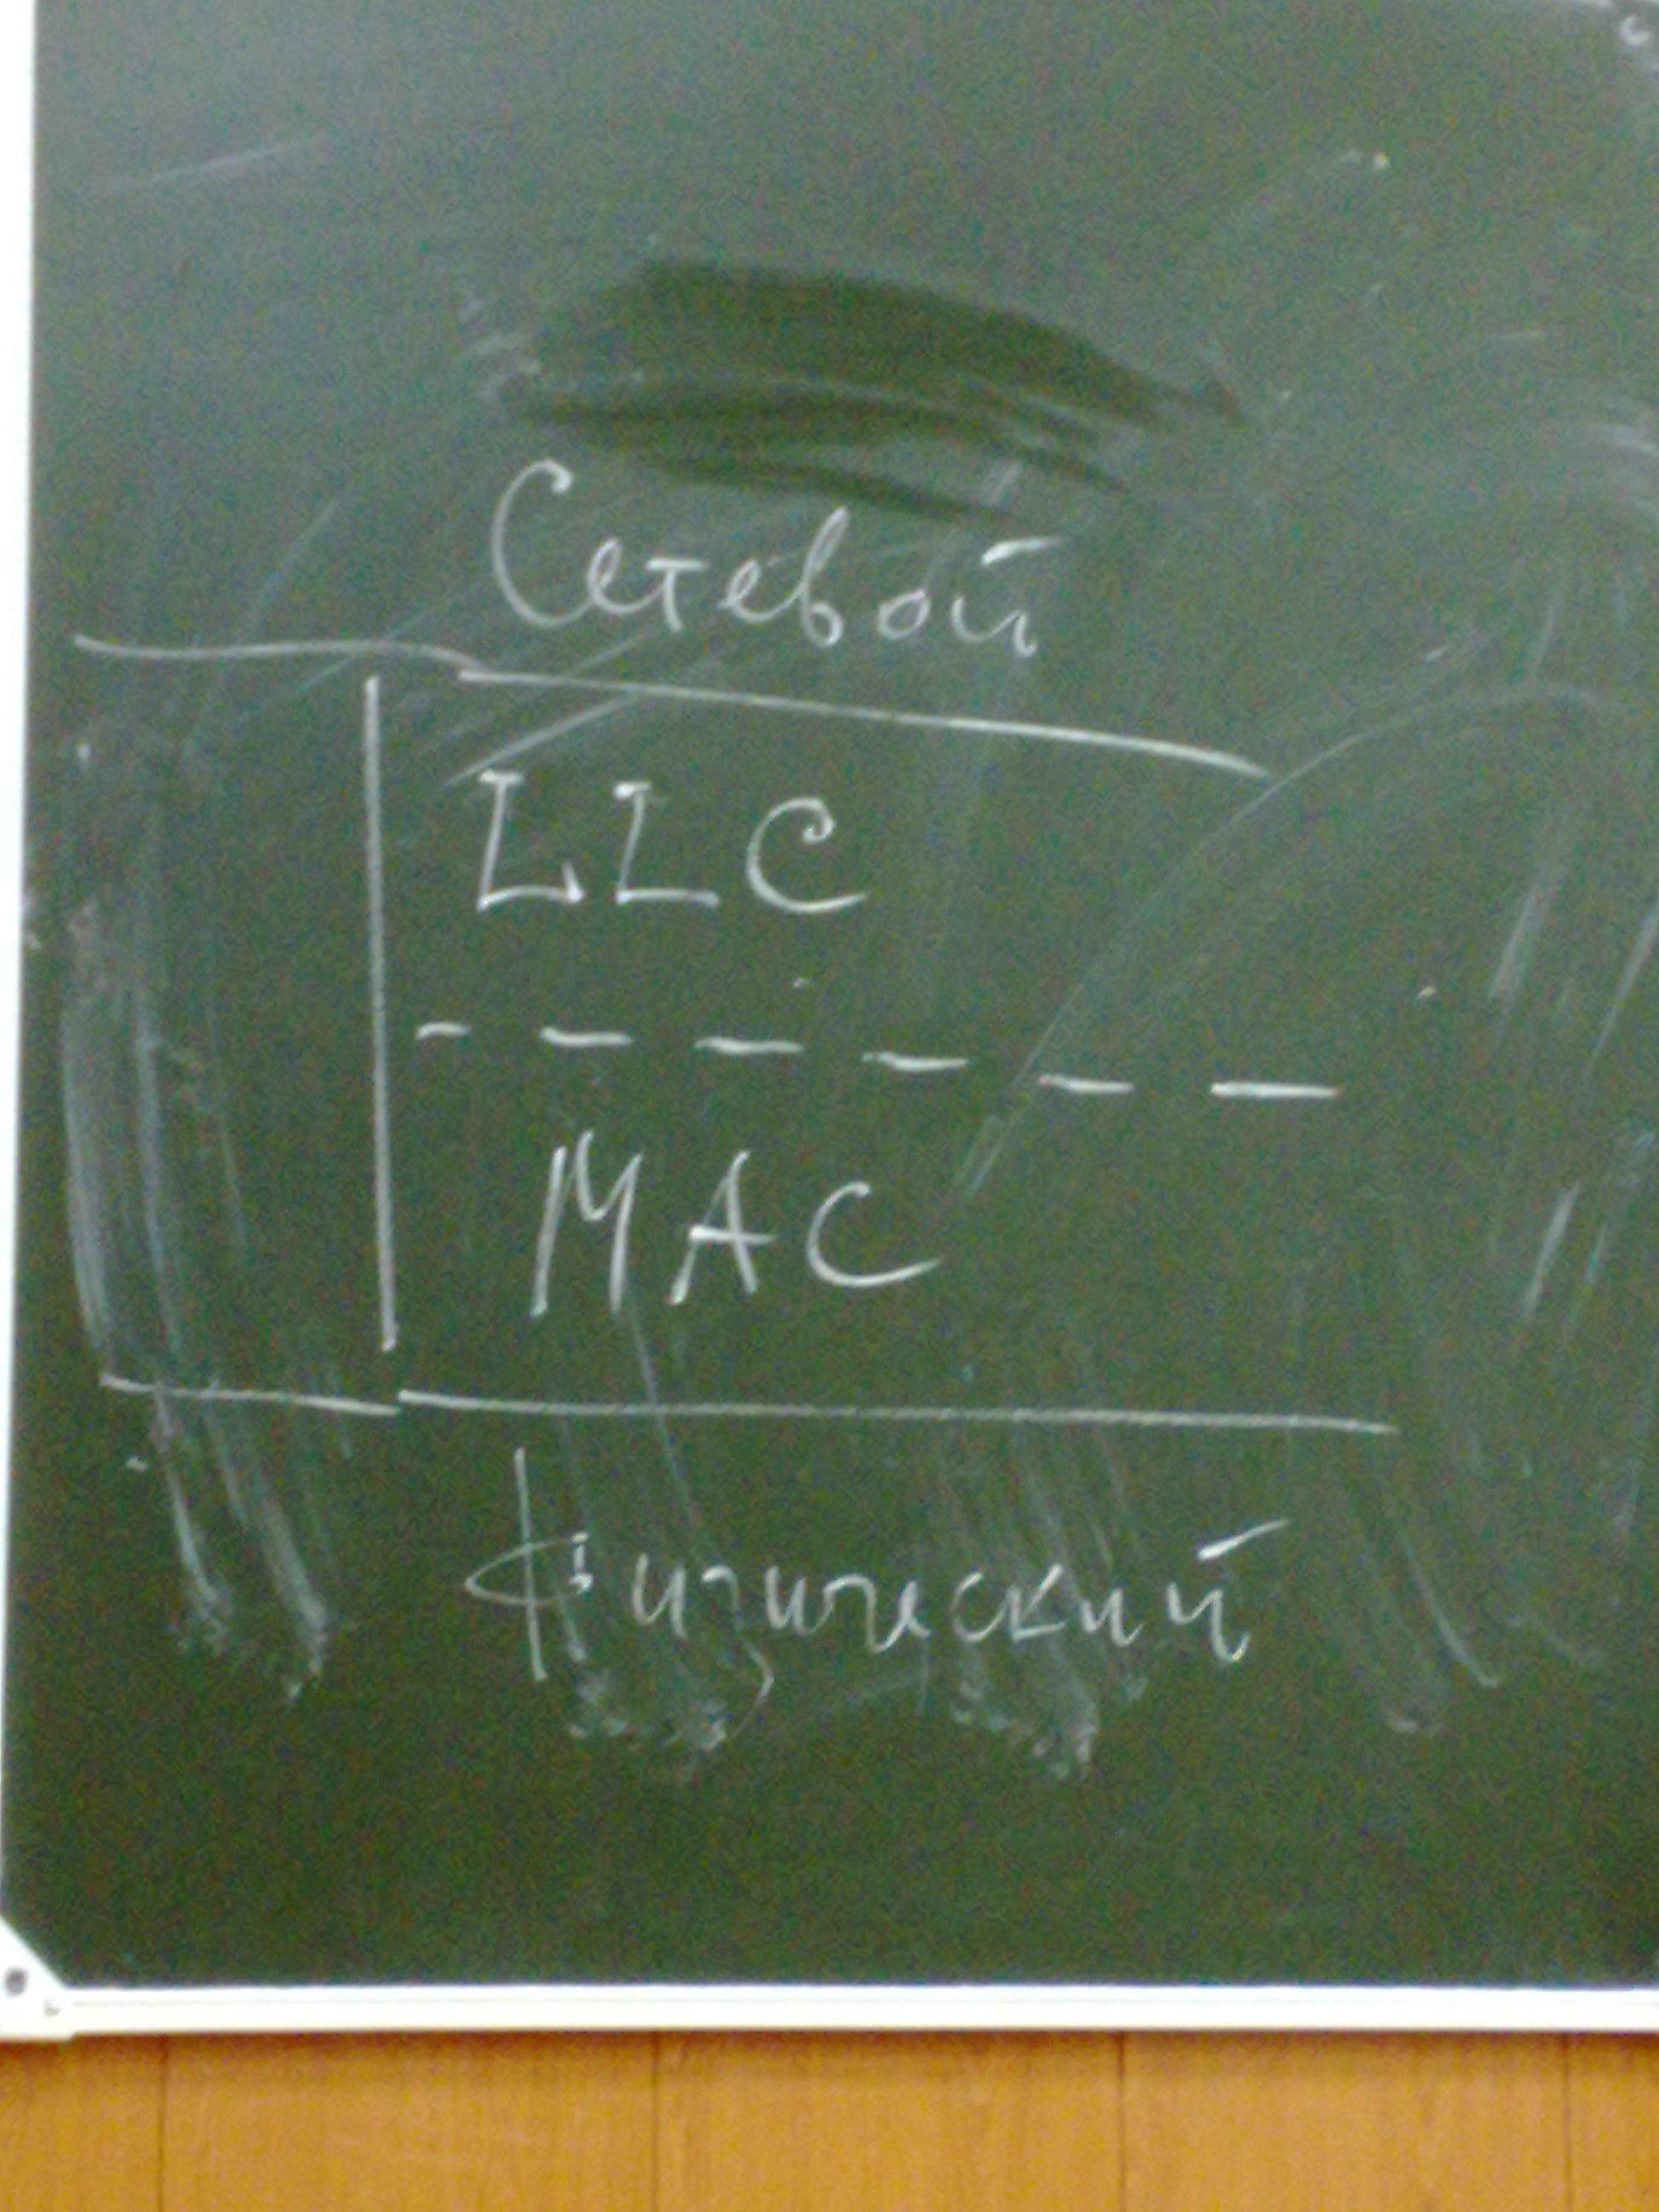 Сетевой
LLC
MAC
Физический